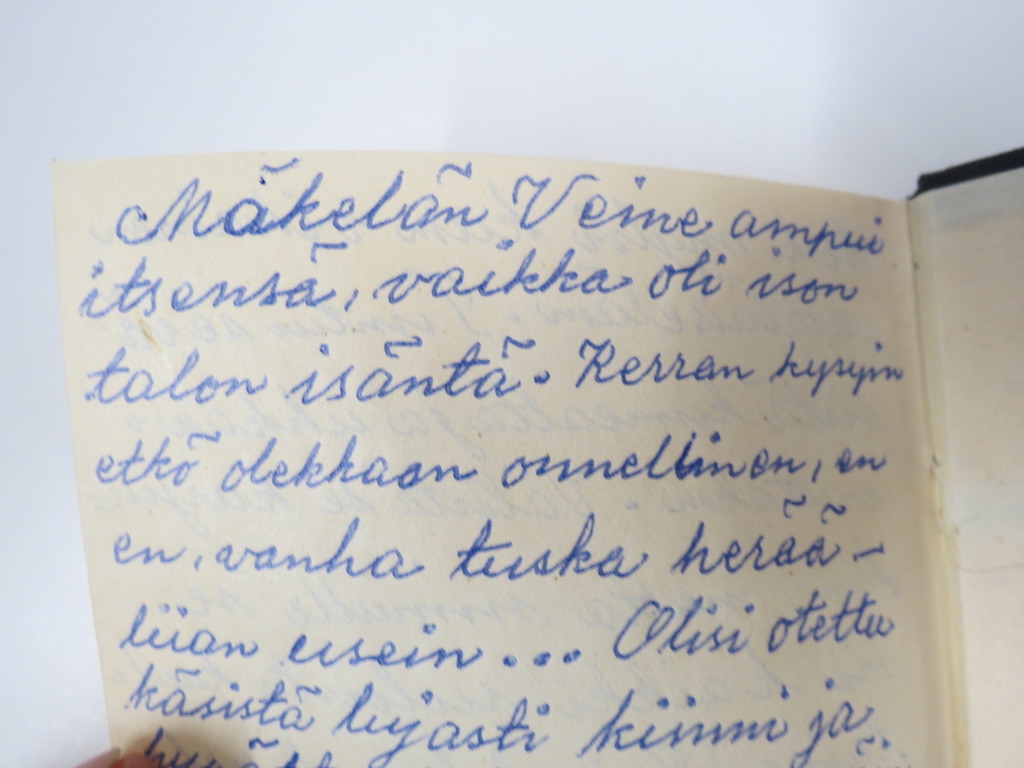 Mäkelän Veine ampui
itsensä, vaikka oli ison
talon isäntä. Kerran kysyin
etkö olekkaan onnellinen, en
en, vanha tuska herää -
liian usein... Olisi otettu
käsistä lujasti kiinni ja